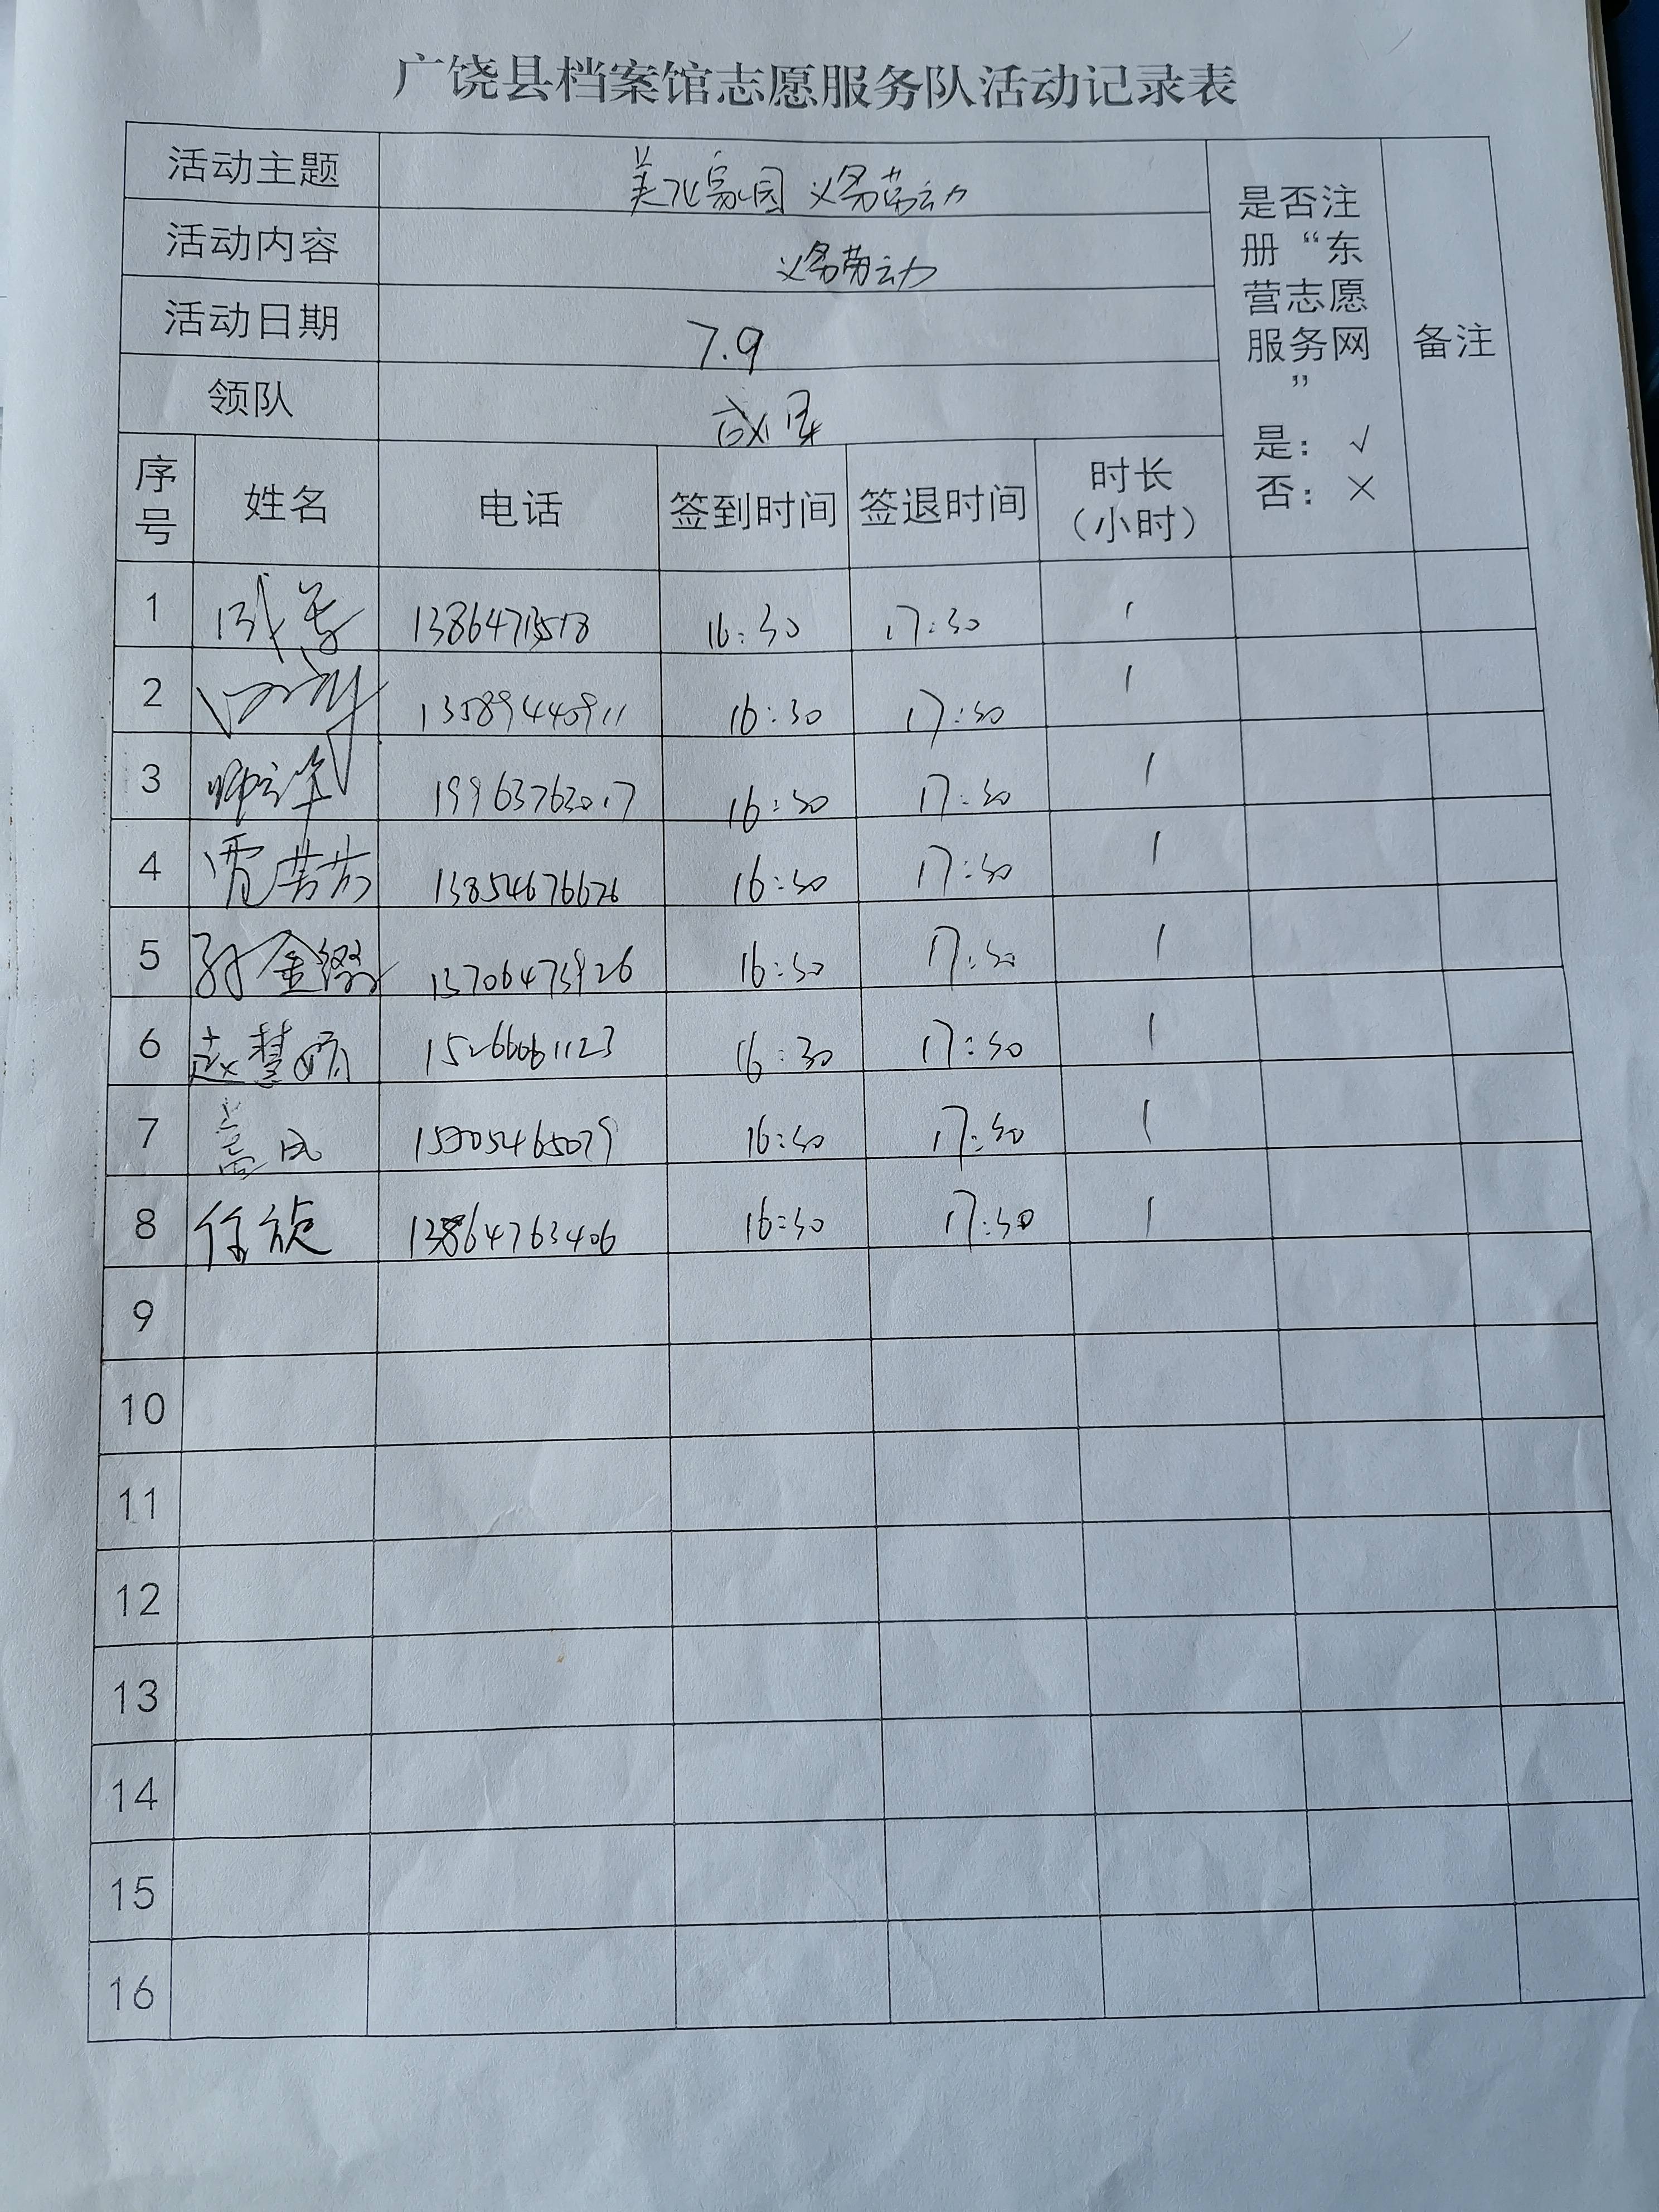 广饶县档案馆志愿服务队活动记录表
活动主题 美化家园 义务劳动
活动内容 义务劳动
活动日期 7.9
领队
是否注
册“东
营志愿
服务网
”
是：√
否：×
备注
序号 姓名 电话 签到时间 签退时间 时长（小时）
1 16:30 17:30 1
2 13589440911 16:30 17:30 1
3 19963763017 16:30 17:30 1
4 贾芳芳 13854676626 16:30 17:30 1
5 孙金缀 13706473926 16:30 17:30 1
6 赵慧娟 15266061123 16:30 17:30 1
7 盖凤 16:30 17:30 1
8 任旋 13864763406 16:30 17:30 1
9
10
11
12
13
14
15
16